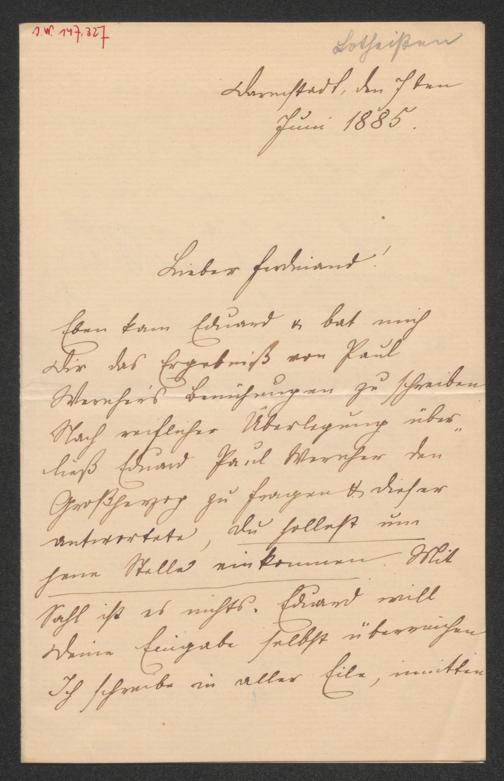 I.N. 147.327
Lotheißen
Darmstadt, den 7ten
Juni 1885.
Lieber Ferdinand!
Eben kam Eduard & bat mich
Dir das Ergebniß von Paul
Wernher's Bemühungen zu schreiben
Nach reiflicher Überlegung über-
ließ Eduard Paul Wernher den
Großherzog zu fragen & dieser
antwortete, Du sollest um
jene Stelle einkommen. Mit
Sahl ist es nichts. Eduard will
Deine Eingabe selbst überreichen
Ich schreibe in aller Eile, inmitten